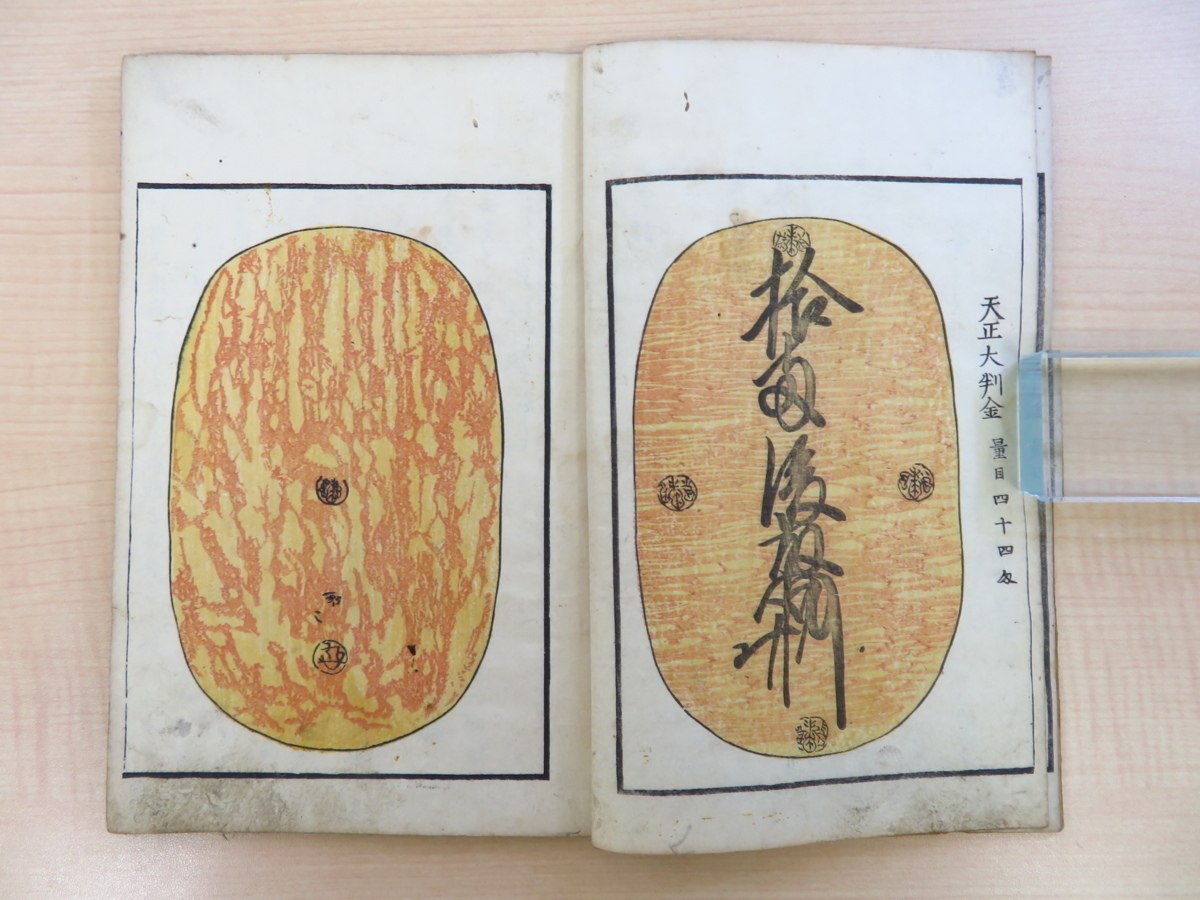 天正大判金 量目四十四匁
拾両後藤